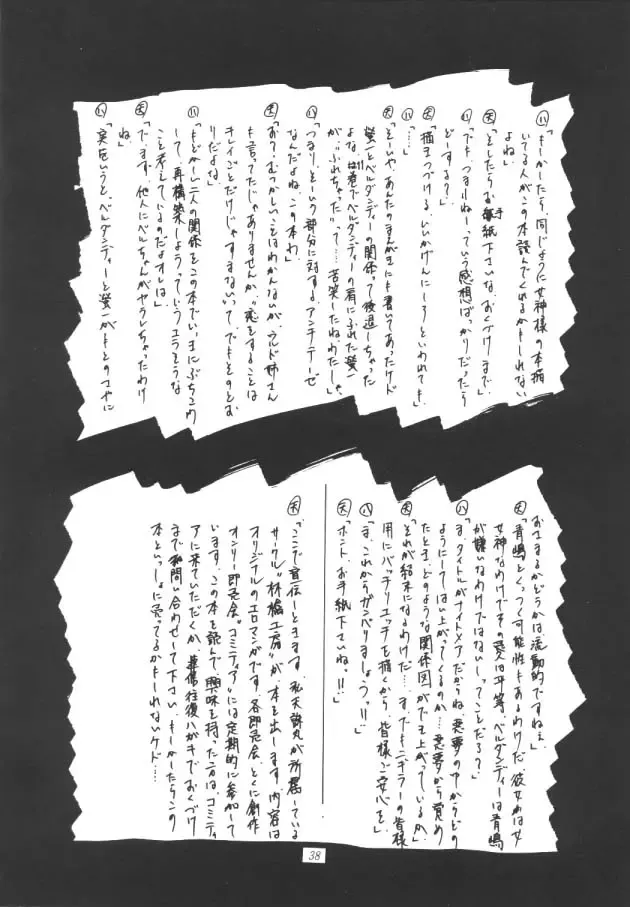 ㊇「もしかしたら、同じように女神様の本描
いてる人がこの本読んでくれるかもしれない
よね」
㊝「そしたらお手紙下さいな、おくづけまで」
㊇「でも、つまりねーっていう感想ばっかりだったら
どーする？」
㊝「描きつづける、いいかげんにしろといわれても」
㊇「…」
㊝「そーいや、あんたのまんがにも書いてあったケド
螢一とベルダンディーの関係って後退しちゃった
よな、は巻でベルダンディーの肩にふれた螢一
が、"ふれちゃった"って…苦笑したねわたしゃ」
㊇「つまり、そーいう部分に対するアンチテーゼ
なんだよね、この本わ」
㊝「お？、むつかしいことはわかんないが、ウルド姉さん
も言ってたじゃありませんか、"恋をすることは
キレイごとだけじゃすまない"って、でもそのとお
りだよな」
㊇「もどかしい二人の関係をこの本でいっきにぶちこわ
して、再構築しようっていうエラそうな
こと考えているのだよオレは」
㊝「でも、まず、他人にベルちゃんがヤラレちゃったわけ
ね」
㊇「実をいうと、ベルダンディーと螢一がもとのさやに
おさまるかどうかは、流動的ですねぇ」
㊝「青嶋とくっつく可能性もあるわけだ、彼女かは女
女神なわけでその愛は平等、ベルダンディーは青嶋
が嫌いなわけではないしってことだろ？」
㊇「ま、タイトルがナイトメアだからね、悪夢の中からどの
ようにしてはい上がってくるのか…悪夢から覚め
たとき、どのような関係図ができ上がっているか、
それが結末になるわけだ…、までもキニチラーの皆様
用にバッチリエッチを描くから、皆様ご安心を」
㊇「ま、これからガンバりましょっつ!!」
㊝「ホント、お手紙下さいね。!!」
㊝「ここで宣伝しときます、私天誅丸が所属している
サークル"林檎工房"が本を出します、内容は
オリジナルのエロマンガです、各即売会、とくに創作
オンリー即売会"コミティア"には定期的に参加して
います、この本を読んで、興味を持った方は、コミティ
アに来ていただくか、葉書往復ハガキでおくづけ
まで御問い合わせて下さい、もしかしたらこの
本といっしょに売ってるかもしれないケド…
38